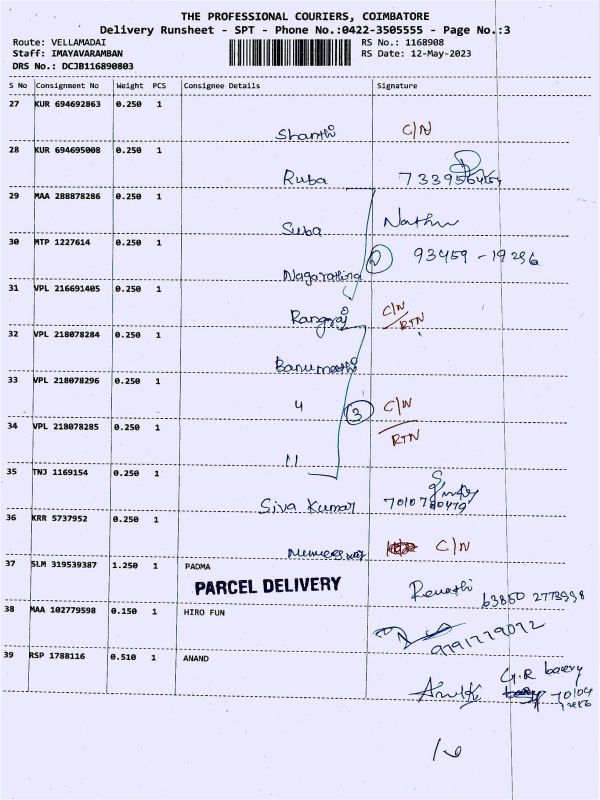 THE PROFESSIONAL COURIERS, COIMBATORE
Delivery Runsheet - SPT - Phone No.:0422-3505555 - Page No.:3
Route: VELLAMADAI RS No.: 1168908
Staff: IMAYAVARAMBAN RS Date: 12-May-2023
DRS No.: DCJB116890803
S No Consignment No Weight PCS Consignee Details Signature
27 KUR 694692863 0.250 1
Shanthi C/N
28 KUR 694695008 0.250 1
Ruba
29 MAA 288878286 0.250 1
Suba Nathu
30 MTP 1227614 0.250 1
2 93459-19236
Nagarathina
31 VPL 216691405 0.250 1
Rangraj C/N
RTN
32 VPL 218078284 0.250 1
Banumathi
33 VPL 218078296 0.250 1
4 3 C/N
34 VPL 218078285 0.250 1
RTN
11
35 TNJ 1169154 0.250 1
Siva Kumar
36 KRR 5737952 0.250 1
C/N
37 SLM 319539387 1.250 1 PADMA
PARCEL DELIVERY
Revathi
38 MAA 102779598 0.150 1 HIRO FUN
9791779072
39 RSP 1788116 0.510 1 ANAND
G.R